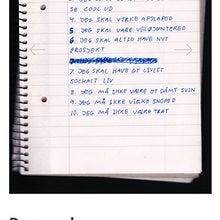 SE COOL UD
4. JEG SKAL VIRKE AFSLAPPET
5. JEG SKAL VÆRE VELORIENTERET
6. JEG SKAL ALTID HAVE NYT
PROSJEKT
7. JEG SKAL HAVE ET LIVLIGT
SOCIALT LIV
8. JEG MÅ IKKE VÆRE ET DÅMT SVIN
9. JEG MÅ IKKE VIRKE SNOBBET
10. JEG MÅ IKKE VÆRE TRÆT